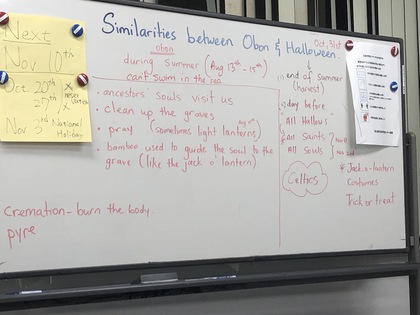 Similarities between Obon & Halloween.
Next
Nov. 10th
Oct 20th
Nov 3rd National
Holiday
obon
during Summer (Aug 13th - 15th)
can't swim in the sea
ancestors' souls visit us
clean up the graves
pray (sometimes light lanterns)
bamboo used to guide the soul to the
grave (like the jack o' lantern)
cremation - burn the body.
pyre
Oct. 31st
end of summer
day before
All Hallows
Saints
All Souls
Celtics
Jack-o-lantern
Costumes
Trick or treat